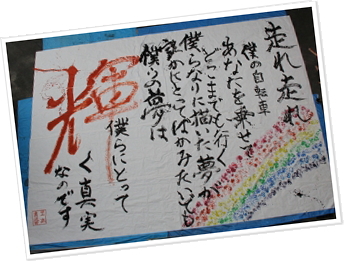 走れ走れ
僕の自転車
あなたを乗せて
どこまでも行く
僕らなりに描いた夢が
誰かにとってばかみたいでも
僕らの夢は
僕らにとって
輝
く真実
なのです